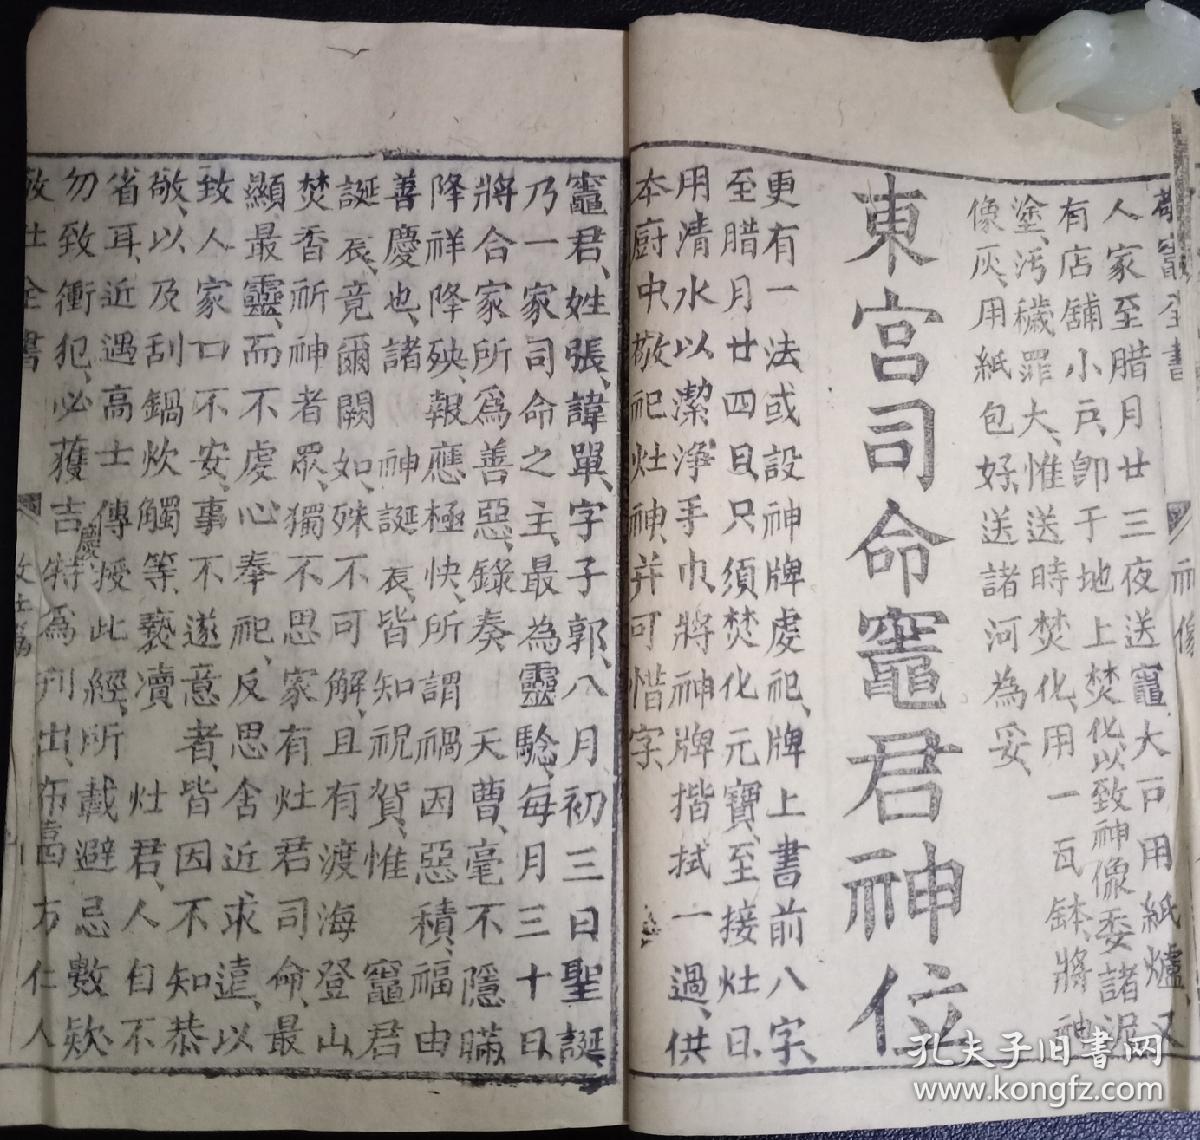 敬竈全書
神像
人家至腊月廿三夜送竈大戶用紙爐又
有店舖小戶卽于地上焚化以致神像委諸泥
塗汚穢罪大惟送時焚化用一瓦鉢將神
像灰用紙包好送諸河為妥
東宮司命竈君神位
更有一法或設神牌處祀牌上書前八字
至腊月廿四日只須焚化元寶至接灶日
用清水以潔淨手巾將神牌揩拭一過供
本廚中敬祀灶神并可惜字
竈君姓張諱單字子郭八月初三日聖誕
乃一家司命之主最為靈驗每月三十日
將合家所爲善惡錄奏天曹毫不隱瞞
降祥降殃報應極快所謂禍因惡積福由
善慶也諸神誕辰皆知祝賀惟竈君
誕辰竟爾闕如殊不可解且有渡海登山
焚香祈神者眾獨不思家有灶君司命最
顯最靈而不虔心奉祀反思舍近求遠以
致人家口不安事不遂意者皆因不知恭
敬以及刮鍋炊觸等褻瀆灶君人自不
省耳近遇高士傳授此經所載避忌數欵
勿致衝犯必獲吉慶特爲刋出布吿四方仁人
敬灶全書
孔夫子旧書网
www.kongfz.com